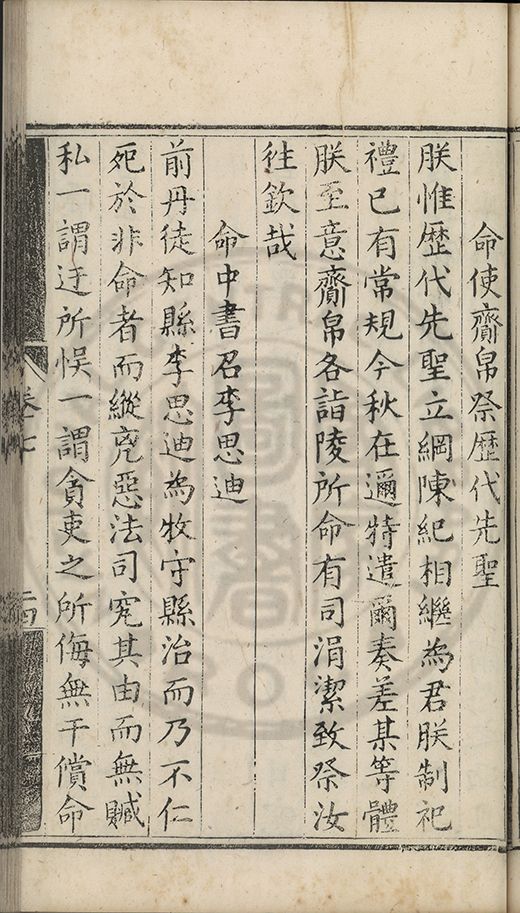 命使齎帛祭歷代先聖
朕惟歷代先聖立綱陳紀相繼為君朕制祀
禮已有常規今秋在邇特遣爾奏差某等體
朕至意齎帛各詣陵所命有司涓潔致祭汝
徃欽哉
命中書召李思迪
前丹徒知縣李思迪為牧守縣治而乃不仁
死於非命者而縱兇惡法司究其由而無贓
私一謂迂所悞一謂貪吏之所侮無干償命
卷七
二四